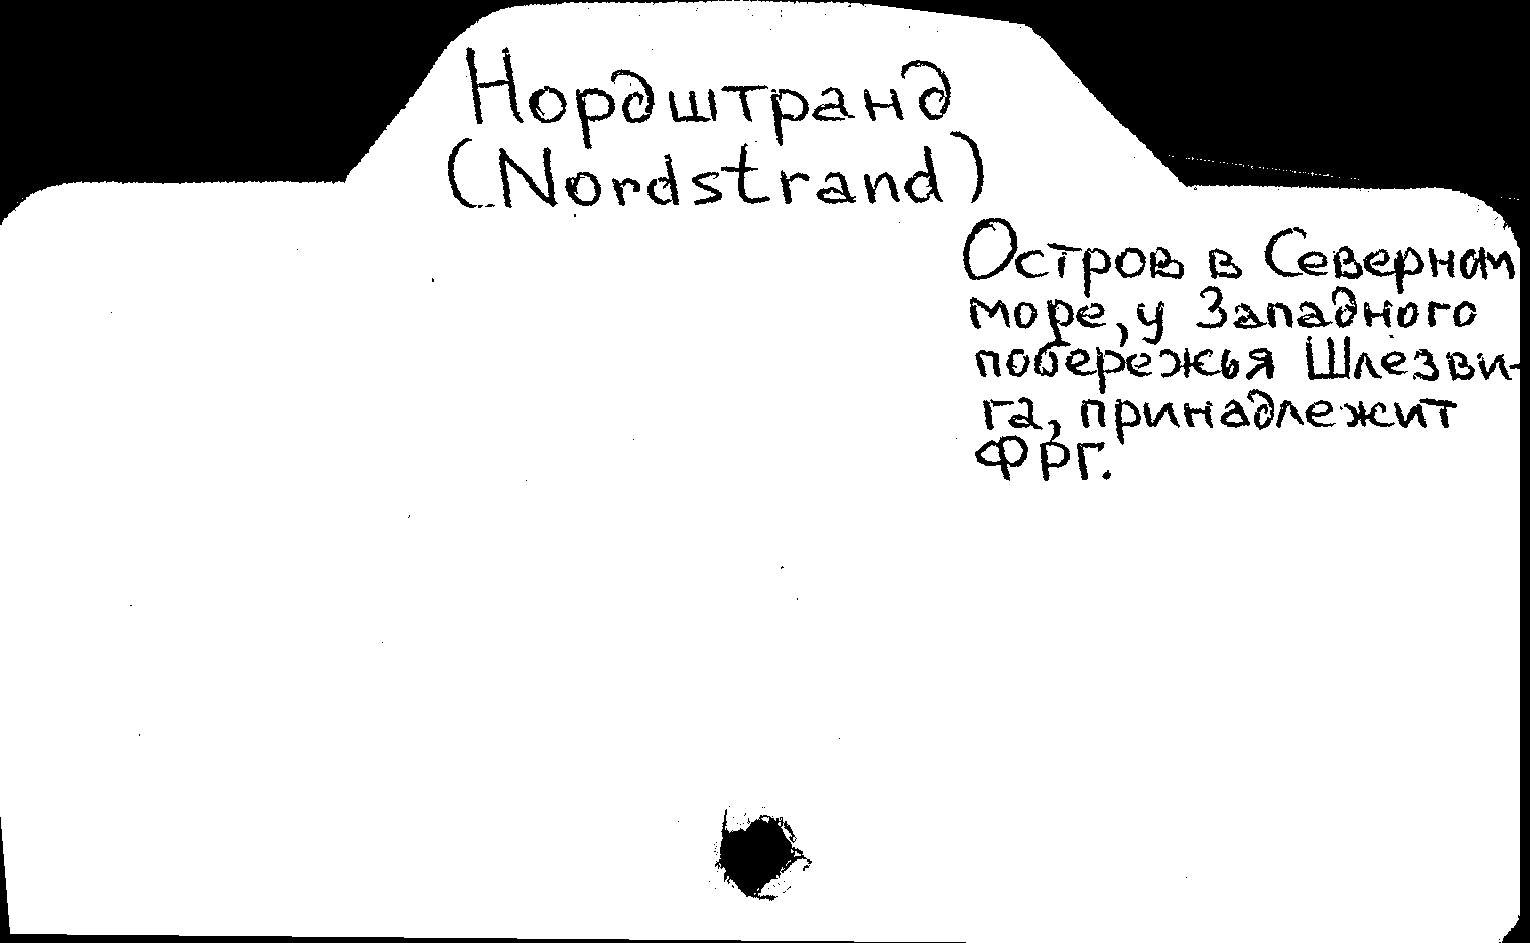 Нордштранд
(Nordstrand)
Остров в Северном
море, у Западного
побережья Шлезви-
га, принадлежит
ФРГ.